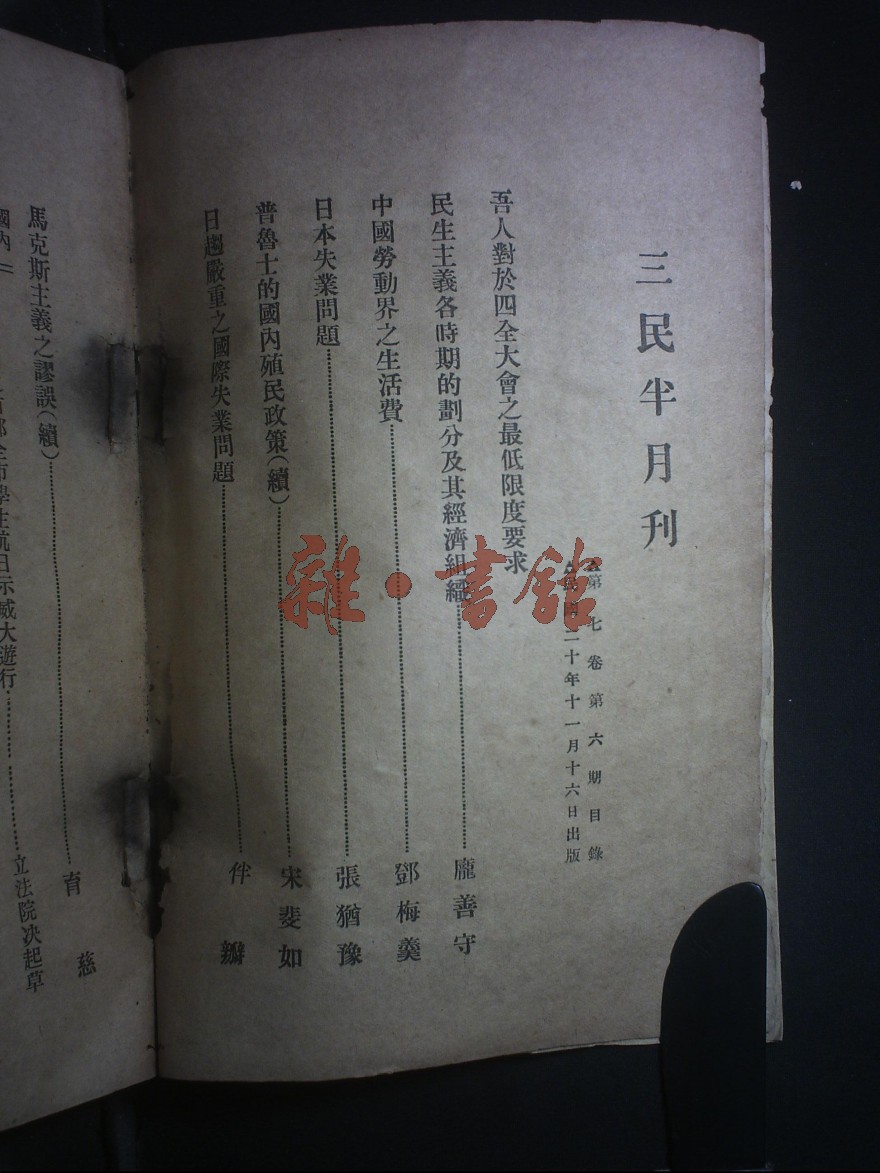 三民半月刊
第七卷第六期目錄
民國二十年十一月十六日出版
吾人對於四全大會之最低限度要求
民生主義各時期的劃分及其經濟組織……龐善守
中國勞動界之生活費……鄧梅羹
日本失業問題……張猶豫
普魯士的國內殖民政策(續)……宋斐如
日趨嚴重之國際失業問題……伴瓣
馬克斯主義之謬誤(續)……育慈
國內
全市學生抗日示威大遊行……立法院决起草
雜·書館